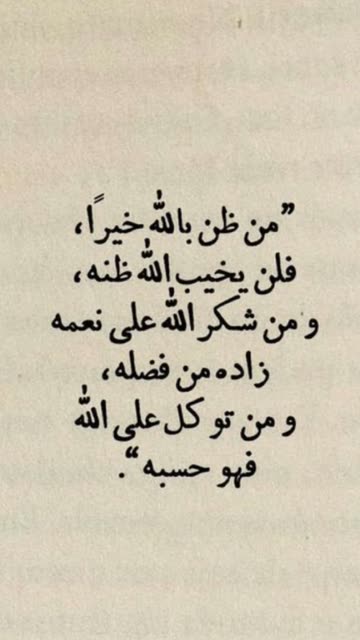 ”من ظن بالله خيراً،
فلن يخيب الله ظنه،
و من شكر الله على نعمه
زاده من فضله،
و من توكل على الله
فهو حسبه“.